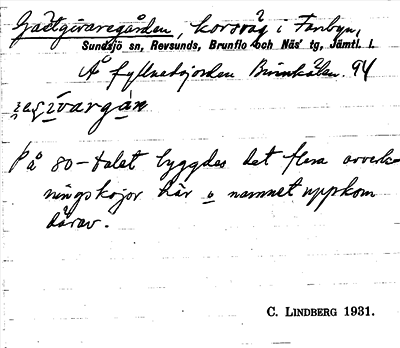 Gästgivaregården, korsväg i Fanbyn,
Sundsjö sn, Revsunds, Brunflo och Näs' tg, Jämtl. l.
Å fyllnadsjorden Brinnkälen. 94
På 80-talet byggdes det flera avverk-
ningskojor här o namnet uppkom
därav.
C. LINDBERG 1931.